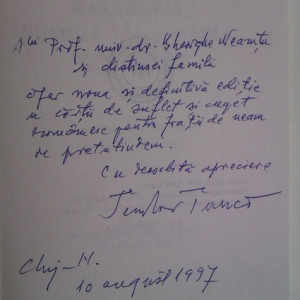 D-lui Prof. univ. dr. Gheorghe Neamțu
și distinsei familii
ofer noua și definitivă ediție
a cărții de suflet și cuget
românesc pentru frații de neam
de pretutindeni.
Cu deosebită apreciere
Teodor Tanco
Cluj-N.
10 august 1997